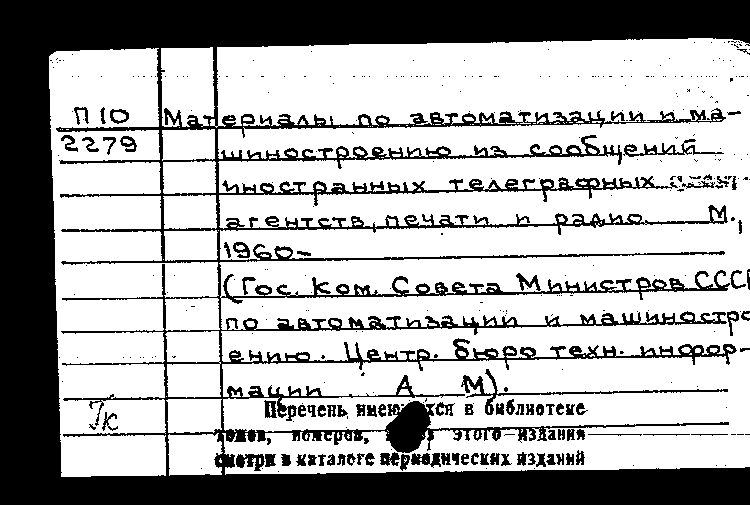 П 10 Материалы по автоматизации и ма-
2279 шиностроению из сообщений
иностранных телеграфных
агентств, печати и радио. М.,
1960-
(Гос. Ком. Совета Министров СССР
по автоматизации и машиностро
ению. Центр. бюро техн. инфор-
мации. А М).
Тк
Перечень имеющихся в библиотеке
томов, номеров, этого издания
смотри в каталоге периодических изданий